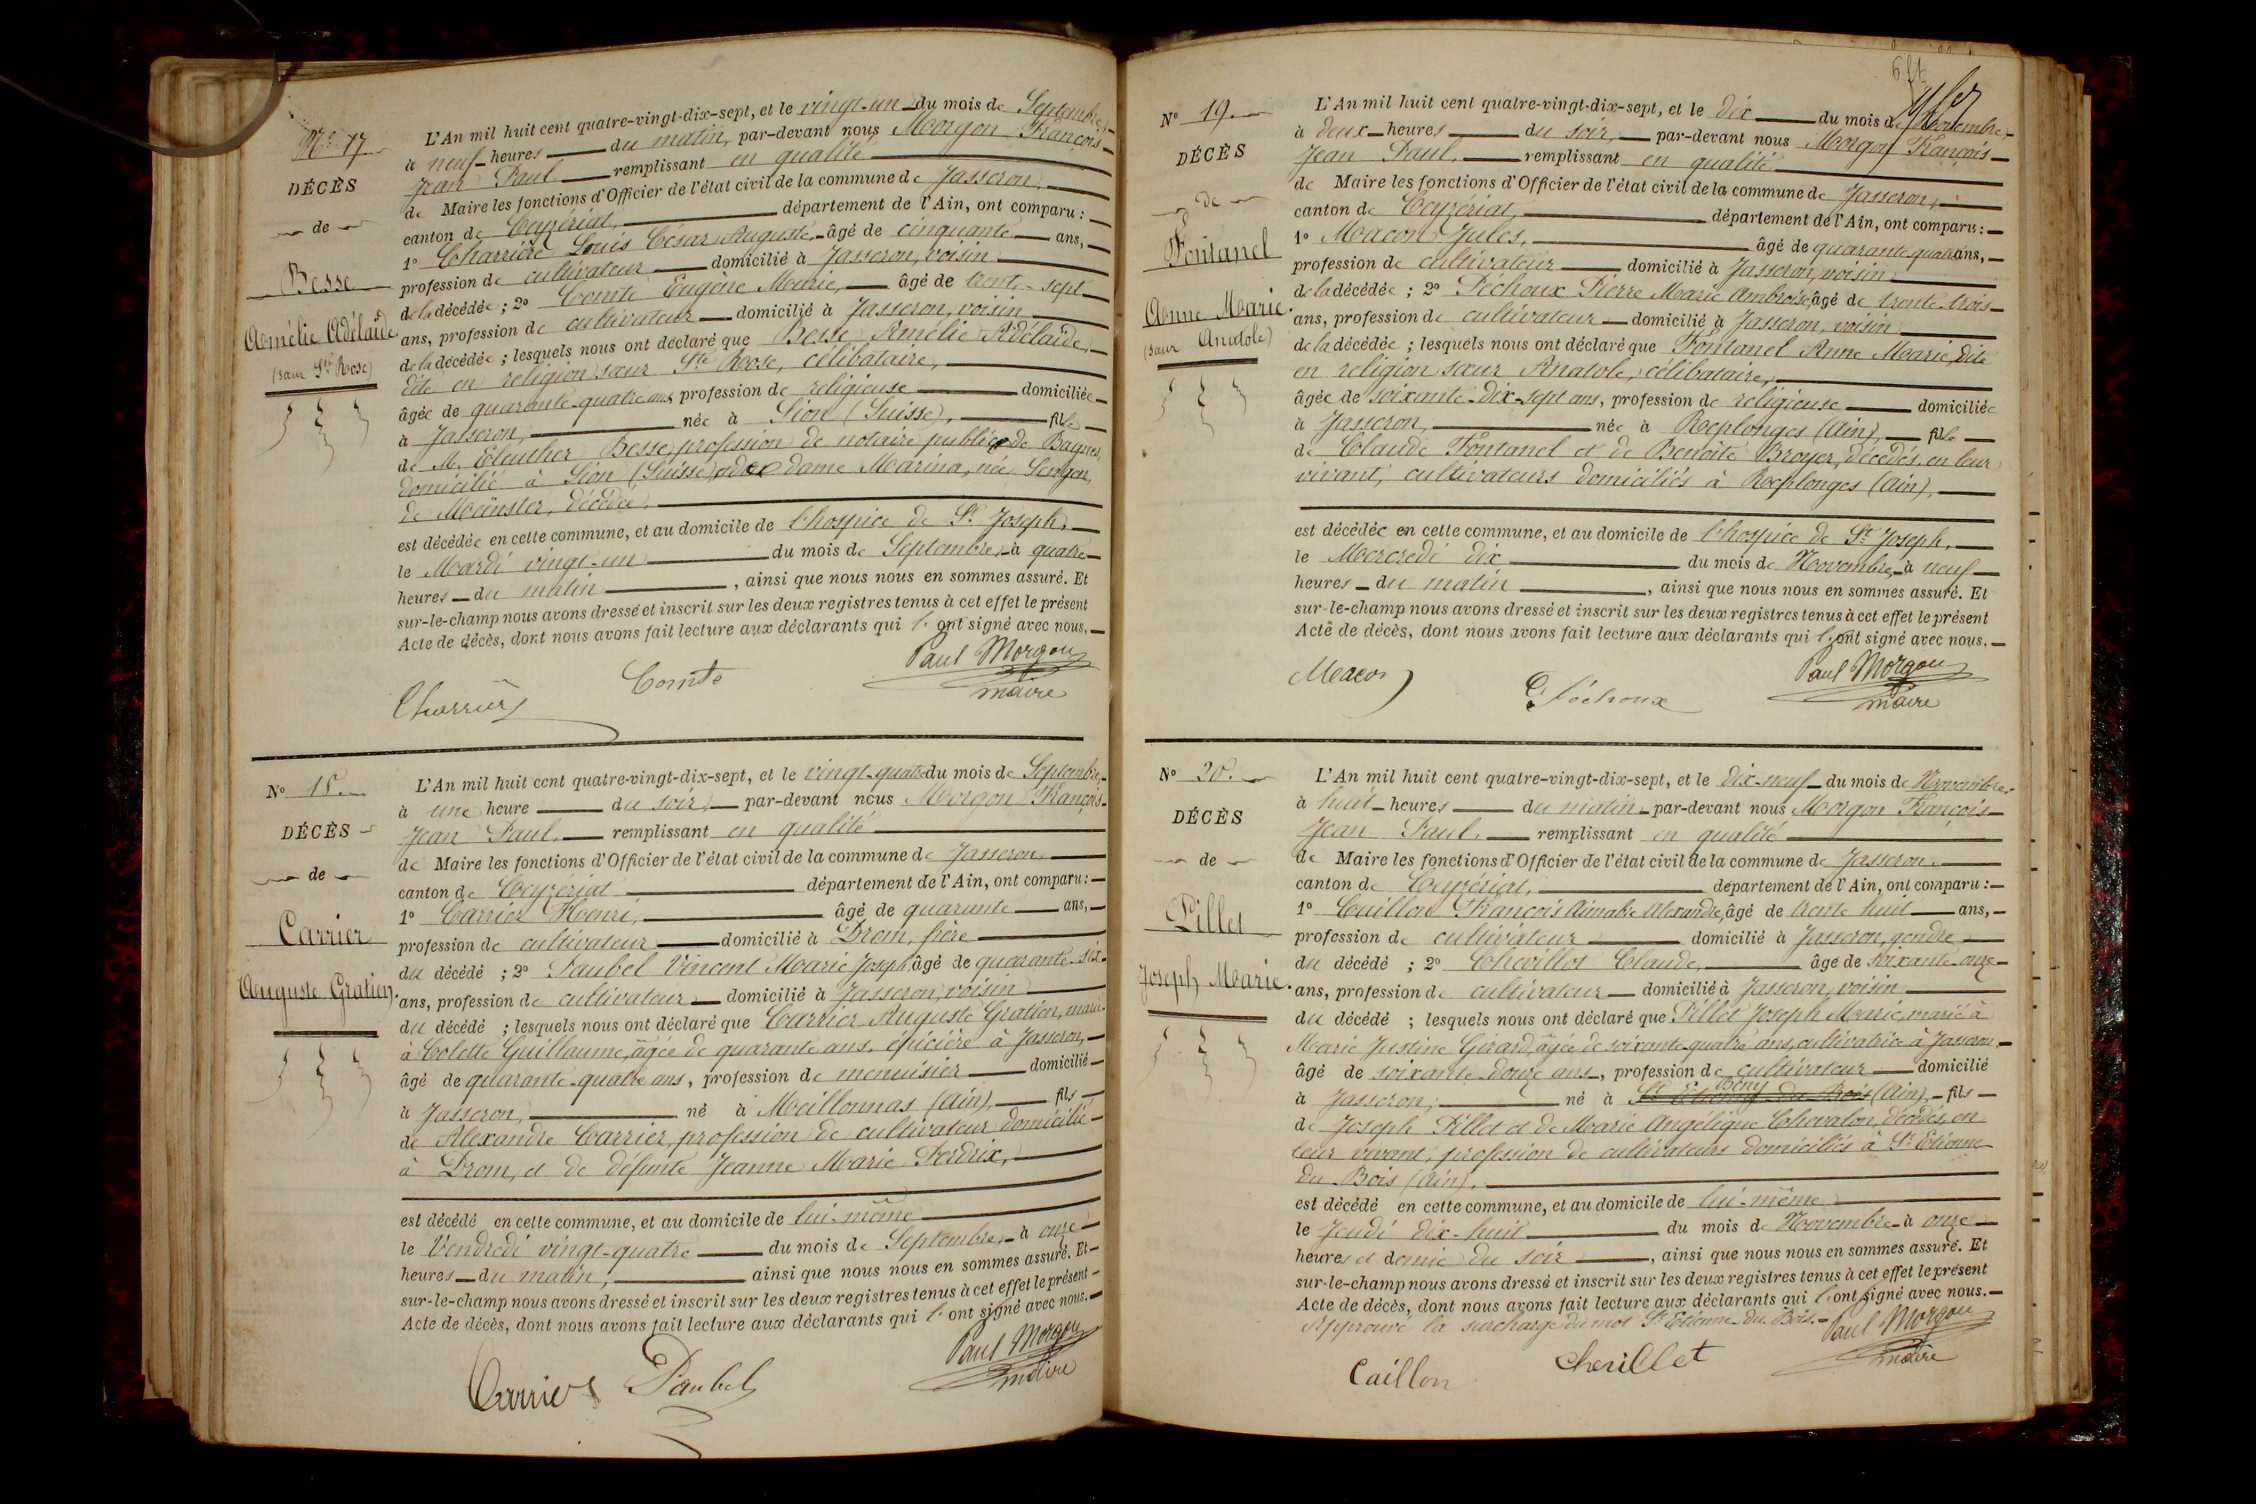 No 17
DÉCÈS
de
Besse
Amélie Adélaïde
(sœur Ste Rose)
L'An mil huit cent quatre-vingt-dix-sept, et le vingt-un du mois de Septembre,
à neuf heures du matin, par-devant nous Morgon François
Jean Paul remplissant en qualité
de Maire les fonctions d'Officier de l'état civil de la commune de Jasseron,
canton de Ceyzériat, département de l'Ain, ont comparu :
1o Charrière Louis César Auguste, âgé de cinquante ans,
profession de cultivateur domicilié à Jasseron, voisin
de la décédée ; 2o Comte Eugène Marie, âgé de trente-sept
ans, profession de cultivateur domicilié à Jasseron, voisin
de la décédée ; lesquels nous ont déclaré que Besse Amélie Adélaïde,
dite en religion sœur Ste Rose, célibataire,
âgée de quarante-quatre ans, profession de religieuse domiciliée
à Jasseron, née à Sion (Suisse), fille
de M. Eleuther Besse, profession de notaire public de Bagnes,
domicilié à Sion (Suisse), et de dame Marina, née
de Münster, décédée,
est décédée en cette commune, et au domicile de l'hospice de St Joseph,
le Mardi vingt-un du mois de Septembre, à quatre
heures du matin, ainsi que nous nous en sommes assuré. Et
sur-le-champ nous avons dressé et inscrit sur les deux registres tenus à cet effet le présent
Acte de décès, dont nous avons fait lecture aux déclarants qui l'ont signé avec nous.
Charrière
Comte
Paul Morgon
maire
No 18.
DÉCÈS
de
Carrier
Auguste Gratien.
L'An mil huit cent quatre-vingt-dix-sept, et le vingt-quatre du mois de Septembre,
à une heure du soir, par-devant nous Morgon François
Jean Paul, remplissant en qualité
de Maire les fonctions d'Officier de l'état civil de la commune de Jasseron,
canton de Ceyzériat département de l'Ain, ont comparu :
1o Carrier Henri, âgé de quarante ans,
profession de cultivateur domicilié à Drom, frère
du décédé ; 2o Paubel Vincent Marie Joseph, âgé de quarante-six
ans, profession de cultivateur domicilié à Jasseron, voisin
du décédé ; lesquels nous ont déclaré que Carrier Auguste Gratien, marié
à Colette Guillaume, âgée de quarante ans, épicière à Jasseron,
âgé de quarante-quatre ans, profession de menuisier domicilié
à Jasseron, né à Meillonnas (Ain), fils
de Alexandre Carrier, profession de cultivateur domicilié
à Drom, et de défunte Jeanne Marie Perdrix,
est décédé en cette commune, et au domicile de lui-même
le Vendredi vingt-quatre du mois de Septembre, à onze
heures du matin, ainsi que nous nous en sommes assuré. Et
sur-le-champ nous avons dressé et inscrit sur les deux registres tenus à cet effet le présent
Acte de décès, dont nous avons fait lecture aux déclarants qui l'ont signé avec nous.
Carrier
Paubel
Paul Morgon
maire
No 19.
DÉCÈS
de
Fontanel
Anne Marie.
(sœur Anatole)
L'An mil huit cent quatre-vingt-dix-sept, et le dix du mois de Novembre,
à deux heures du soir, par-devant nous Morgon François
Jean Paul, remplissant en qualité
de Maire les fonctions d'Officier de l'état civil de la commune de Jasseron,
canton de Ceyzériat, département de l'Ain, ont comparu :
1o Macon Jules, âgé de quarante-quatre ans,
profession de cultivateur domicilié à Jasseron, voisin
de la décédée ; 2o Péchoux Pierre Marie Ambroise, âgé de trente-trois
ans, profession de cultivateur domicilié à Jasseron, voisin
de la décédée ; lesquels nous ont déclaré que Fontanel Anne Marie, dite
en religion sœur Anatole, célibataire,
âgée de soixante-dix-sept ans, profession de religieuse domiciliée
à Jasseron, née à Replonges (Ain), fille
de Claude Fontanel et de Benoite Broyer, décédés, en leur
vivant, cultivateurs domiciliés à Replonges (Ain),
est décédée en cette commune, et au domicile de l'hospice de St Joseph,
le Mercredi dix du mois de Novembre, à neuf
heures du matin, ainsi que nous nous en sommes assuré. Et
sur-le-champ nous avons dressé et inscrit sur les deux registres tenus à cet effet le présent
Acte de décès, dont nous avons fait lecture aux déclarants qui l'ont signé avec nous.
Macon
Péchoux
Paul Morgon
maire
No 20.
DÉCÈS
de
Pillet
Joseph Marie.
L'An mil huit cent quatre-vingt-dix-sept, et le dix-neuf du mois de Novembre
à huit heures du matin par-devant nous Morgon François
Jean Paul, remplissant en qualité
de Maire les fonctions d'Officier de l'état civil de la commune de Jasseron,
canton de Ceyzériat, département de l'Ain, ont comparu :
1o Caillon François Aimable Alexandre, âgé de trente huit ans,
profession de cultivateur domicilié à Jasseron, gendre
du décédé ; 2o Chevillot Claude, âgé de soixante-onze
ans, profession de cultivateur domicilié à Jasseron, voisin
du décédé ; lesquels nous ont déclaré que Pillet Joseph Marie, marié à
Marie Justine Girard, âgée de soixante-quatre ans, cultivatrice à Jasseron,
âgé de soixante-douze ans, profession de cultivateur domicilié
à Jasseron, né à St Etienne du Bois Bény (Ain), fils
de Joseph Pillet et de Marie Angélique Chevalon, décédés, en
leur vivant, profession de cultivateurs domiciliés à St Etienne
du Bois (Ain),
est décédé en cette commune, et au domicile de lui-même
le Jeudi dix-huit du mois de Novembre à onze
heures et demie du soir, ainsi que nous nous en sommes assuré. Et
sur-le-champ nous avons dressé et inscrit sur les deux registres tenus à cet effet le présent
Acte de décès, dont nous avons fait lecture aux déclarants qui l'ont signé avec nous.
Approuvé la surcharge du mot St Etienne-du-Bois.
Caillon
Chevillet
Paul Morgon
maire